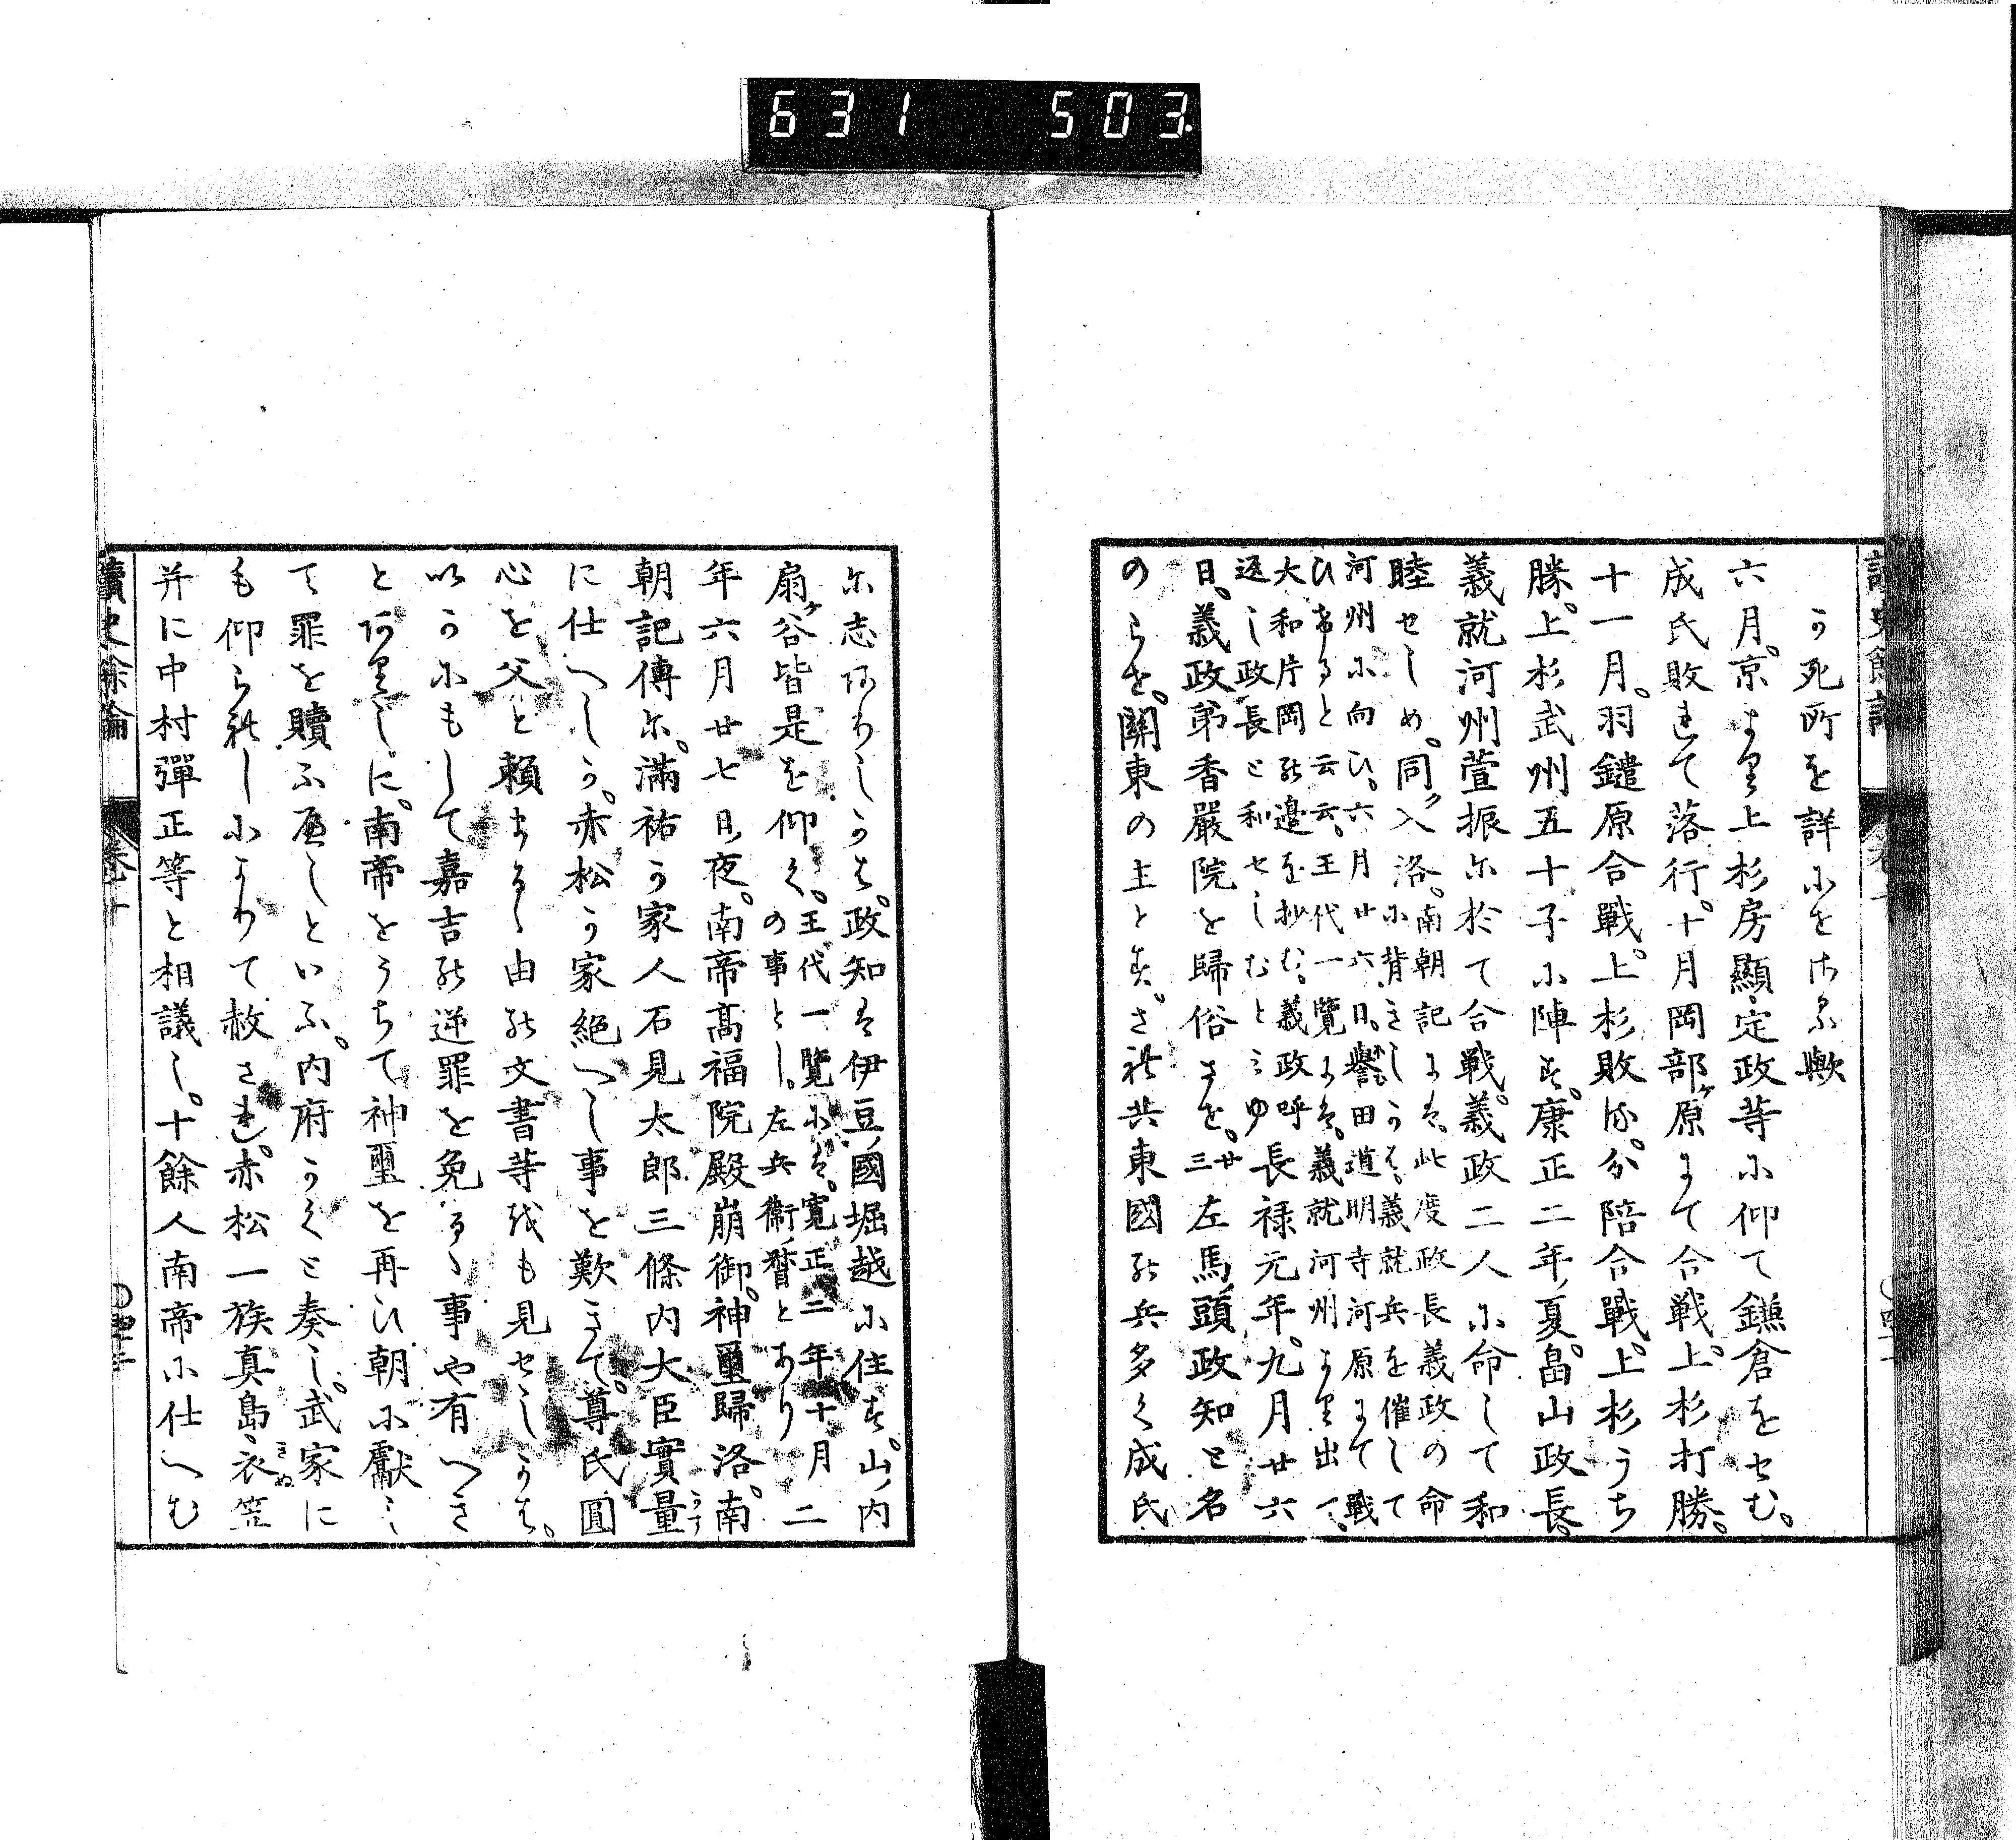 631 503
か死所を詳にせさる歟
六月。京より上杉房顯定政等に仰て鎌倉をせむ。
成氏敗れて落行。十月岡部ヶ原にて合戦。上杉打勝。
十一月。羽鑓原合戰。上杉敗る。分陪合戰。上杉うち
勝。上杉武州五十子に陣す。康正二年夏。畠山政長。
義就河州萱振に於て合戦。義政二人に命して和
睦せしめ。同ク入洛。南朝記には。此度政長義政の命
に背きしかは。義就兵を催して
河州に向ひ。六月廿六日。譽田道明寺河原にて戰
ひあると云云。王代一覽には。義就河州より出て。
大和片岡の邊を抄む。義政呼
返し政長と和せしむとみゆ 長禄元年。九月廿六
日。義政弟香嚴院を歸俗さす。廿三 左馬頭政知と名
のらす。關東の主とす。され共東國の兵多く成氏
に志ありしかは。政知は伊豆國堀越に住す。山ノ内
扇ヶ谷皆是を仰く。王代一覽には。寛正二年十月
の事とし。左兵衞督とあり 二
年六月廿七日夜。南帝髙福院殿崩御。神璽歸洛。南
朝記傳に。滿祐か家人石見太郎三條内大臣實量
に仕へしか。赤松か家絶へし事を歎きて。尊氏圓
心を父と頼まるゝ由の文書等をも見せしかは。
いかにもして嘉吉の逆罪を免るゝ事や有へき
とありしに。南帝をうちて神璽を再ひ朝に獻し
て罪を贖ふへしといふ。内府かくと奏し。武家に
も仰られしによりて赦され。赤松一族真島衣笠
并に中村彈正等と相議し。十餘人南帝に仕へむ
讀史餘論 卷十